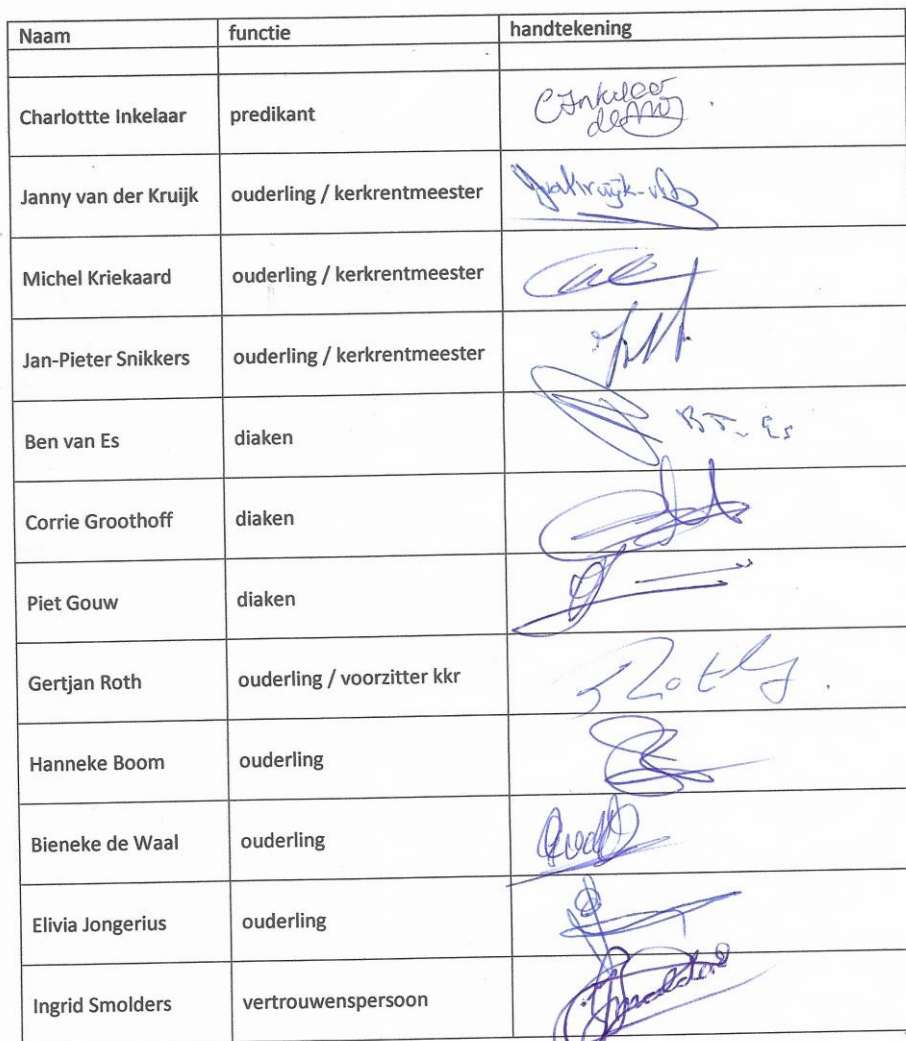 Naam functie handtekening
Charlottte Inkelaar predikant CInkelaar
de
Janny van der Kruijk ouderling / kerkrentmeester
Michel Kriekaard ouderling / kerkrentmeester
Jan-Pieter Snikkers ouderling / kerkrentmeester
Ben van Es diaken
Corrie Groothoff diaken
Piet Gouw diaken
Gertjan Roth ouderling / voorzitter kkr
Hanneke Boom ouderling
Bieneke de Waal ouderling
Elivia Jongerius ouderling
Ingrid Smolders vertrouwenspersoon